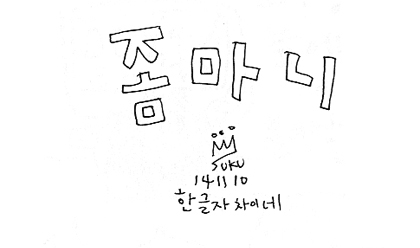 쫌마니
SUKU
141110
한글자차이네